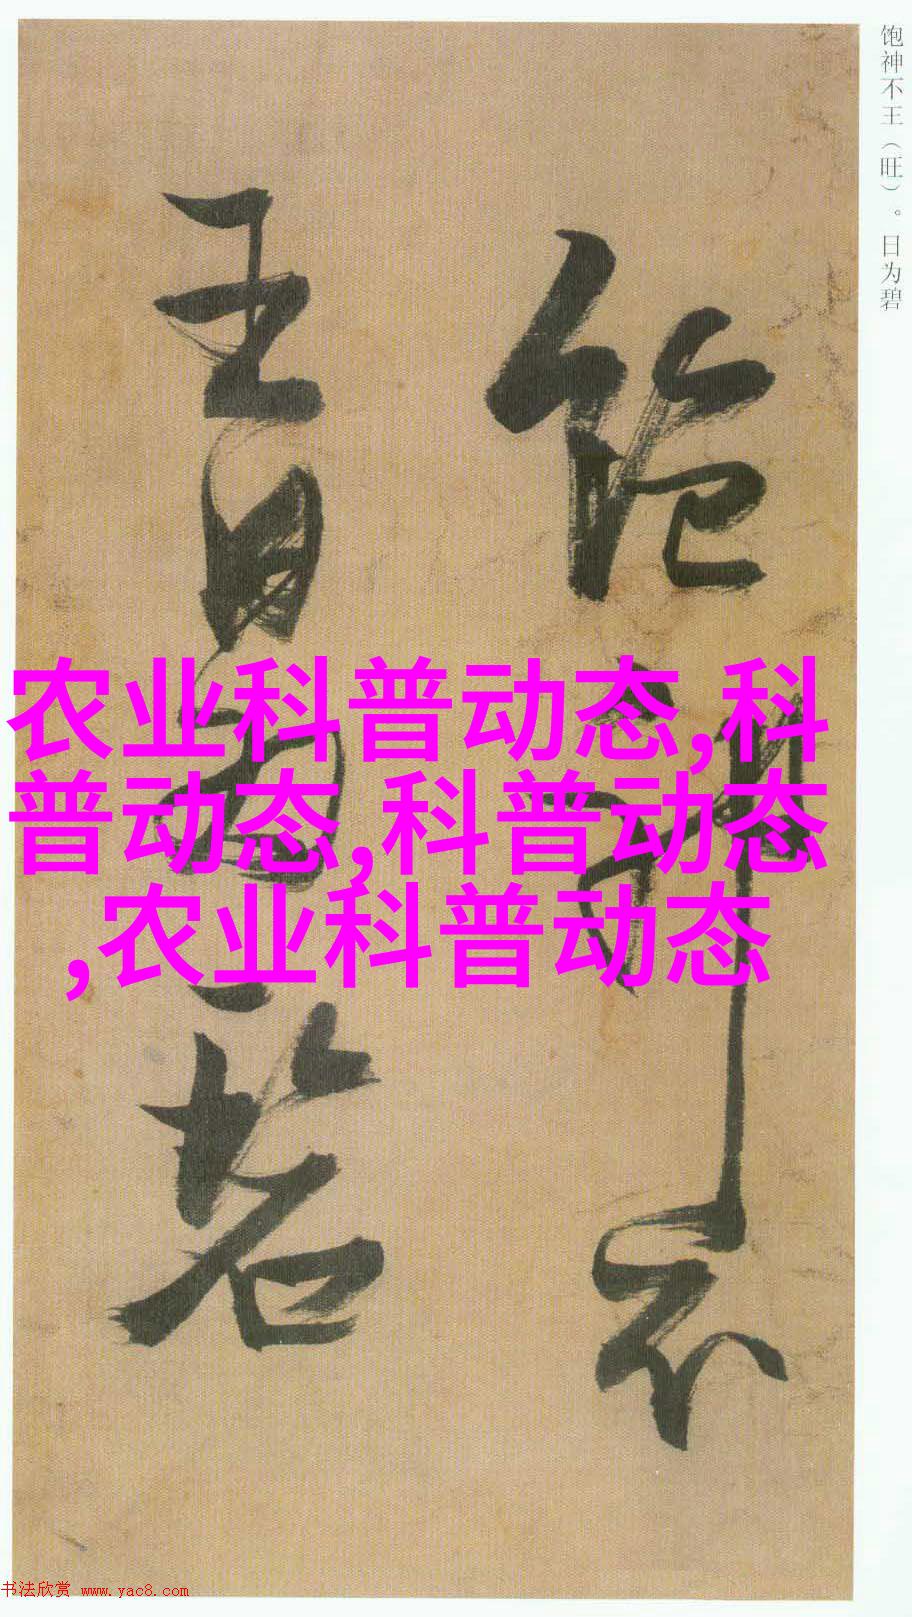 饱神不王（旺）。日为碧
饱神不
王日为碧
农业科普动态,科
普动态,科普动态
,农业科普动态
书法欣赏 www.yac8.com